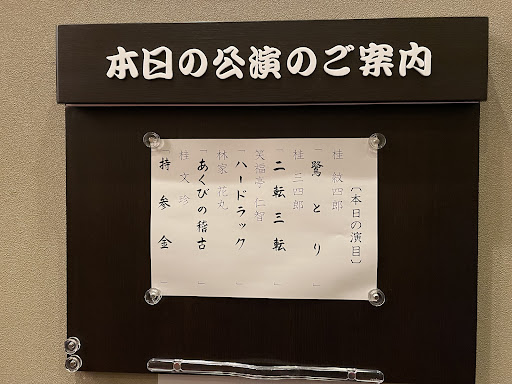 本日の公演のご案内
【本日の演目】
桂 紋四郎
「鷺 と り 」
桂 三四郎
「二 転 三 転 」
笑福亭 仁智
「ハードラック 」
林家 花丸
「あくびの稽古 」
桂 文珍
「持 参 金 」